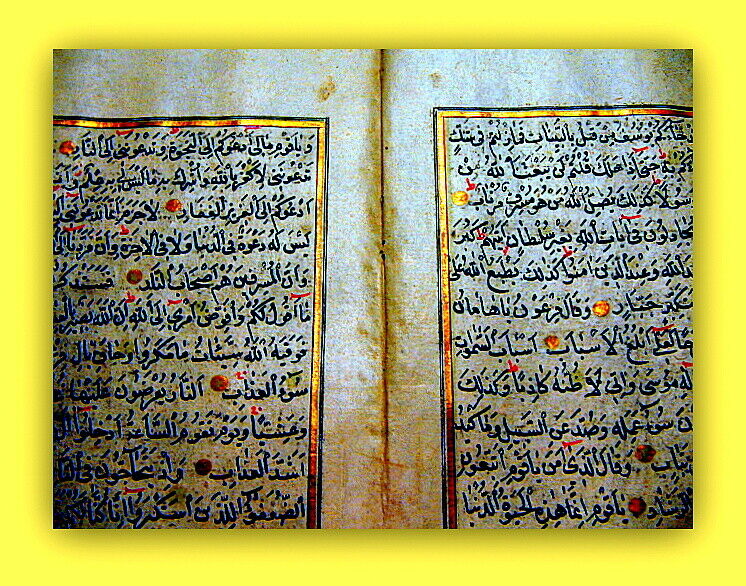 جاءكم يوسف من قبل بالبينات فما زلتم في شك
جاءكم به حتى اذا هلك قلتم لن يبعث الله من
رسولا كذلك يضل الله من هو مسرف مرتاب
يجادلون في ايات الله بغير سلطان اتيهم كبر
عند الله وعند الذين امنوا كذلك يطبع الله على
متكبر جبار وقال فرعون يا هامان
لعلي ابلغ الاسباب اسباب السموات
اله موسى واني لاظنه كاذبا وكذلك
سوء عمله وصد عن السبيل وما كيد
تباب وقال الذي امن يا قوم اتبعون
الرشاد يا قوم انما هذه الحيوة الدنيا
ويا قوم مالي ادعوكم الى النجوة وتدعونني الى النار
تدعونني لاكفر بالله واشرك به ما ليس لي به علم وانا
ادعوكم الى العزيز الغفار لا جرم انما تدعونني
ليس له دعوة في الدنيا ولا في الاخرة وان مردنا الى
وان المسرفين هم اصحاب النار فستذكرون
ما اقول لكم وافوض امري الى الله ان الله بصير
فوقيه الله سيئات ما مكروا وحاق بال
سوء العذاب النار يعرضون عليها
وعشيا ويوم تقوم الساعة ادخلوا
اشد العذاب واذ يتحاجون في النار
الضعفوا للذين استكبروا انا كنا